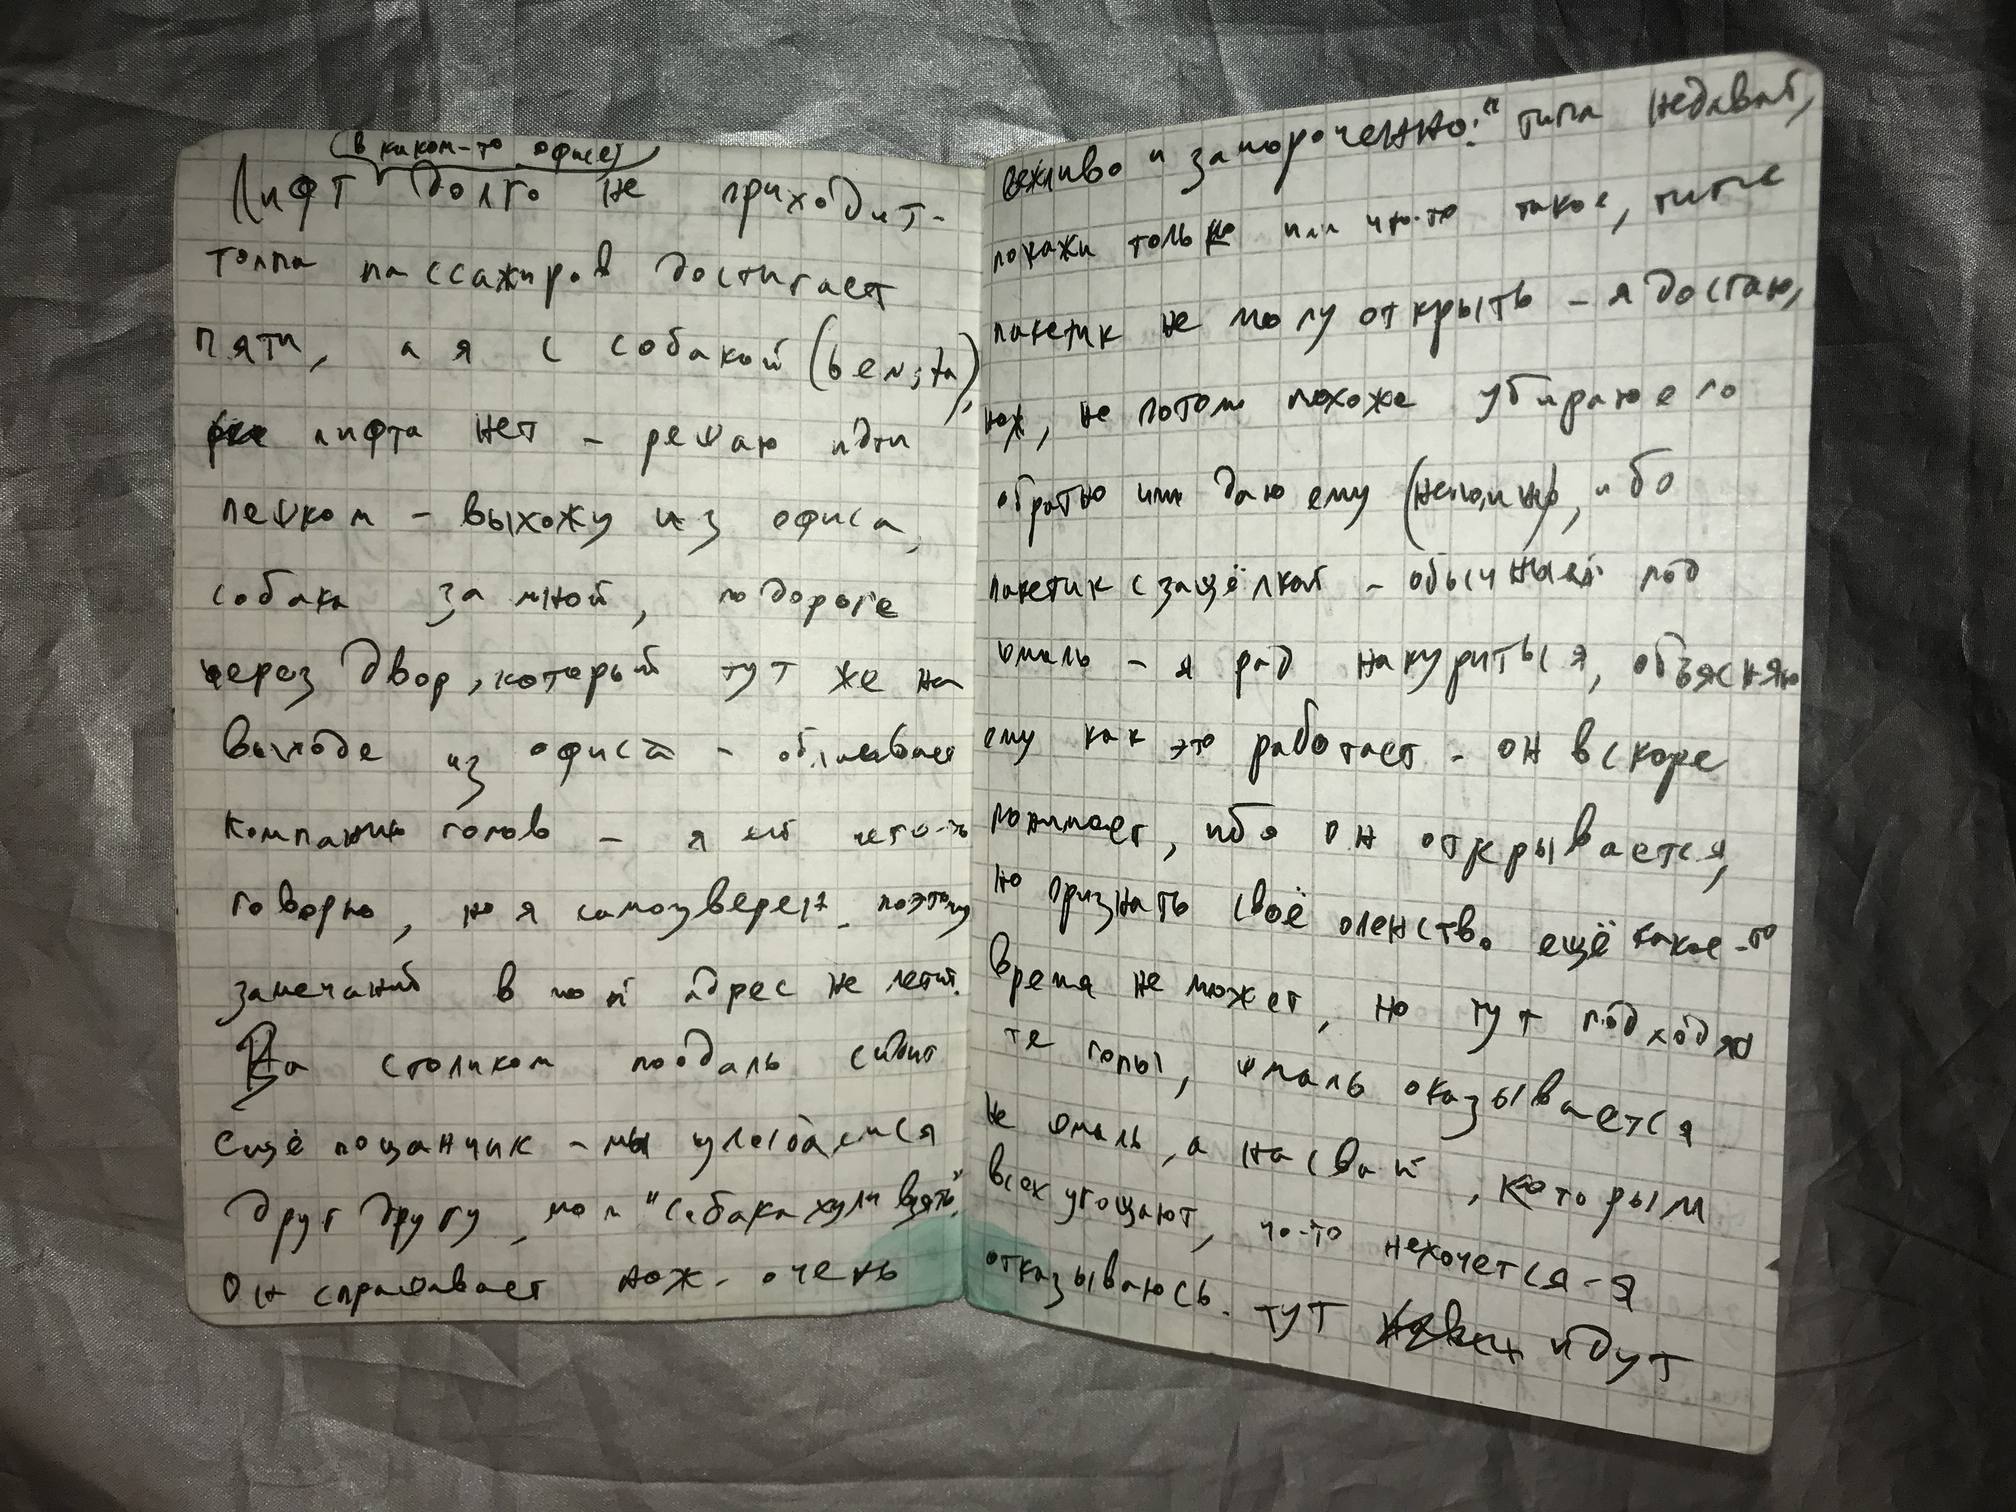 (в каком-то офисе)
Лифт долго не приходит-
толпа пассажиров достигает
пяти, а я с собакой
лифта нет - решаю идти
пешком - выхожу из офиса,
собака за мной, по дороге
через двор, который тут же на
выходе из офиса - облаивает
компанию гопов - я ей чего-то
говорю, но я самоуверен - поэтому
замечаний в мой адрес не летит.
За столиком поодаль сидит
ещё пощанчик - мы улыбаемся
друг другу, мол "собака хули взять".
Он спрашивает нож - очень
вежливо и замороченно:" типа недавай,
покажи только или что-то такое, типа
пакетик не могу открыть - я достаю,
нож, но потом похоже убираю его
обратно или даю ему (непомню), ибо
пакетик с защёлкой - обычный под
шмаль - я рад накуриться, объясняю
ему как это работает - он вскоре
понимает, ибо он открывается,
но признать своё оленство ещё какое-то
время не может, но тут подходят
те гопы, шмаль оказывается
не шмаль, а насвай, которым
всех угощают, чо-то нехочется - я
отказываюсь. тут идут